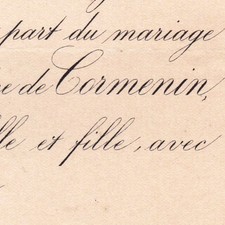 part du mariage
de Cormenin,
et fille, avec